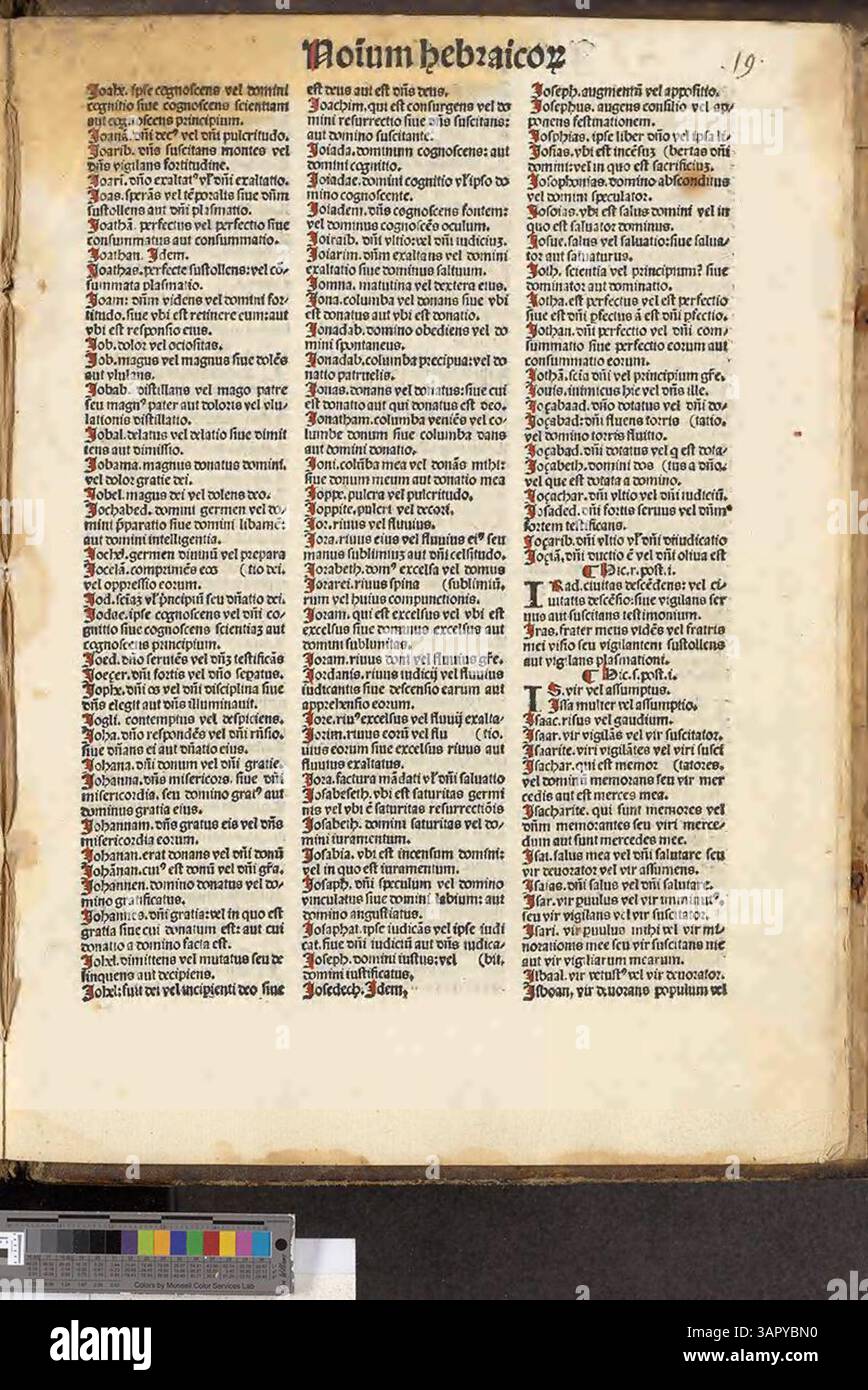 Noium hebraicoꝝ
19.
Joahe. ipse cognoscens vel domini
cognitio siue cognoscens scientiam
aut cognoscens principium.
Joarib. dñs suscitans montes vel
dñs vigilans fortitudine.
Joari. dño exaltatꝰ vł dñi exaltatio.
Joas. sperãs vel tẽporalis siue dñm
sustollens aut dñi plasmatio.
Joathã. perfectus vel perfectio siue
consummatus aut consummatio.
Joathan. Idem.
Joathas. perfecte sustollens: vel cõ/
summata plasmatio.
Joam: dñm videns vel domini for/
titudo. siue vbi est retinere eum: aut
vbi est responsio eius.
Job. dolor vel ociositas.
Job. magus vel magnus siue dolẽs
aut vlulans.
Jobab. distillans vel mago patre
seu magnꝰ pater aut doloris vel vlu/
lationis distillatio.
Jobal. delatus vel delatio siue dimit
tens aut dimissio.
Jobama. magnus donatus domini.
vel dolor gratie dei.
Jobel. magus dei vel dolens deo.
Jochabed. domini germen vel do/
mini p̃paratio siue domini libamẽ:
aut domini intelligentia.
Jochel. germen diuinũ vel prepara
Jocelã. comprimẽs eos (tio dei.
vel oppressio eorum.
Jod. sciãz vł p̃ncipiũ seu dñatio dei.
Jodae. ipse cognoscens vel dñi co/
gnitio siue cognoscens scientiaz aut
cognoscens principium.
Joed. dño seruiẽs vel dñz testificãs
Joeçer. dñi fortis vel dño seꝑatus.
Jophe. dñi os vel dñi disciplina siue
dñs elegit aut dñs illuminauit.
Jogli. contemptus vel despiciens.
Joha. dño respondẽs vel dñi rñsio.
siue dñans ei aut dñatio eius.
Johana. dñi donum vel dñi gratie.
Johanna. dñs misericors. siue dñi
misericordia. seu domino gratꝰ aut
dominus gratia eius.
Johannam. dñs gratus eis vel dñs
misericordia eorum.
Johanan. erat donans vel dñi donũ
Johãnan. cuiꝰ est donũ vel dñi gr̃a.
Johannen. domino donatus vel do/
mino gratificatus.
Johannes. dñi gratia: vel in quo est
gratia siue cui donatum est: aut cui
donatio a domino facta est.
Johel. dimittens vel mutatus seu de
linquens aut decipiens.
Johel: fuit dei vel incipienti deo siue
est deus aut est dñs deus.
Joachim. qui est consurgens vel do
mini resurrectio siue dñs suscitans:
aut domino suscitante.
Joiada. dominum cognoscens: aut
domini cognitio.
Joiadae. domini cognitio vł ipso do
mino cognoscente.
Joiadem. dñs cognoscens fontem:
vel dominus cognoscẽs oculum.
Joiraib. dñi vltio: vel dñi iudiciuz.
Joiarim. dñm exaltans vel domini
exaltatio siue dominus saltuum.
Jomna. matutina vel dextera eius.
Jona. columba vel donans siue vbi
est donatus aut vbi est donatio.
Jonadab. domino obediens vel do
mini spontaneus.
Jonadab. columba precipua: vel do
natio patruelis.
Jonas. donans vel donatus: siue cui
est donatio aut qui donatus est deo.
Jonatham. columba veniẽs vel co/
lumbe donum siue columba dans
aut domini donatio.
Joni. colũba mea vel donãs mihi:
siue donum meum aut donatio mea
Joppe. pulcra vel pulcritudo.
Joppite. pulcri vel decori.
Jor. riuus vel fluuius.
Jora. riuus eius vel fluuius eiꝰ seu
manus sublimius aut dñi celsitudo.
Jorabeth. domꝰ excelsa vel domus
Jorarei. riuus spina (sublimiũ.
rum vel huius compunctionis.
Joram. qui est excelsus vel vbi est
excelsus siue dominus excelsus aut
domini sublimitas.
Joram. riuus doni vel fluuius gr̃e.
Jordanis. riuus iudicij vel fluuius
iudicantis siue descensio earum aut
apprehensio eorum.
Jore. riuꝰ excelsus vel fluuij exalta/
Jorim. riuus eorũ vel flu (tio.
uius eorum siue excelsus riuus aut
fluuius exaltatus.
Jora. factura mãdati vł dñi saluatio
Josabeseth. vbi est saturitas germi
nis vel vbi ẽ saturitas resurrectiõis
Josabeth. domini saturitas vel do/
mini iuramentum.
Josabia. vbi est incensum domini:
vel in quo est iuramentum.
Josaph. dñi speculum vel domino
vinculatus siue domini labium: aut
domino angustiatus.
Josaphat. ipse iudicãs vel ipse iudi
cat. siue dñi iudiciũ aut dñs iudica/
Joseph. domini iustus: vel (bit.
domini iustificatus.
Josedech. Idem.
Joseph. augmentũ vel appositio.
Josephus. augens consilio vel ap/
ponens festinationem.
Josphias. ipse liber dño vel ipsa li/
Josias. vbi est incẽsuz (bertas dñi
domini: vel in quo est sacrificiuz.
Josophonias. domino absconditus
vel domini speculator.
Josoias. vbi est salus domini vel in
quo est saluator dominus.
Josue. salus vel saluatio: siue salua/
tor aut saluaturus.
Joth. scientia vel principium: siue
dominator aut dominatio.
Jotha. est perfectus vel est perfectio
siue est dñi p̃fectus ã est dñi p̃fectio.
Jothan. dñi perfectio vel dñi com/
summatio siue perfectio eorum aut
consummatio eorum.
Jothã. sciã dñi vel principium gr̃e.
Jouis. inimicus hic vel dñs ille.
Joçabaad. dño dotatus vel dñi do/
Joçabad: dñi fluens torris (tatio.
vel domino torris fluitio.
Joçabad. dñi dotatus vel q est dota/
Joçabeth. domini dos (tus a dño.
vel que est dotata a domino.
Joçachar. dñi vltio vel dñi iudiciũ.
fortem testificans.
Joçarib. dñi vltio vł dñi diiudicatio
Joçiã. dñi ductio ẽ vel dñi oliua est
¶ Dic. r. post. i.
IRad. ciuitas descẽdens: vel ci/
uitatis descẽsio: siue vigilans ser
uus aut suscitans testimonium.
Iras. frater meus vidẽs vel fratris
mei visio seu vigilantem sustollens
aut vigilans plasmationi.
¶ Dic. s. post. i.
IS. vir vel assumptus.
Issa mulier vel assumptio.
Isaac. risus vel gaudium.
Isaar. vir vigilãs vel vir suscitator.
Isaarite. viri vigilãtes vel viri susci
Isachar. qui est memor (tatores.
vel dominũ memorans seu vir mer
cedis aut est merces mea.
Isacharite. qui sunt memores vel
dñm memorantes seu viri merce/
dum aut sunt mercedes mee.
Isai. salus mea vel dñi salutare seu
vir deuorator vel vir assumens.
Isaias. dñi salus vel dñi salutare.
Isar. vir puulus vel vir
seu vir vigilans vel vir suscitator.
Isari. vir puulus mihi vel vir mi/
norationis mee seu vir suscitans me
aut vir vigiliarum mearum.
Isbaal. vir vetustꝰ vel vir deuorator.
Isboan. vir deuorans populum vel
Colors by Munsell Color Services Lab
alamy
Image ID: 3APYBN0
www.alamy.com